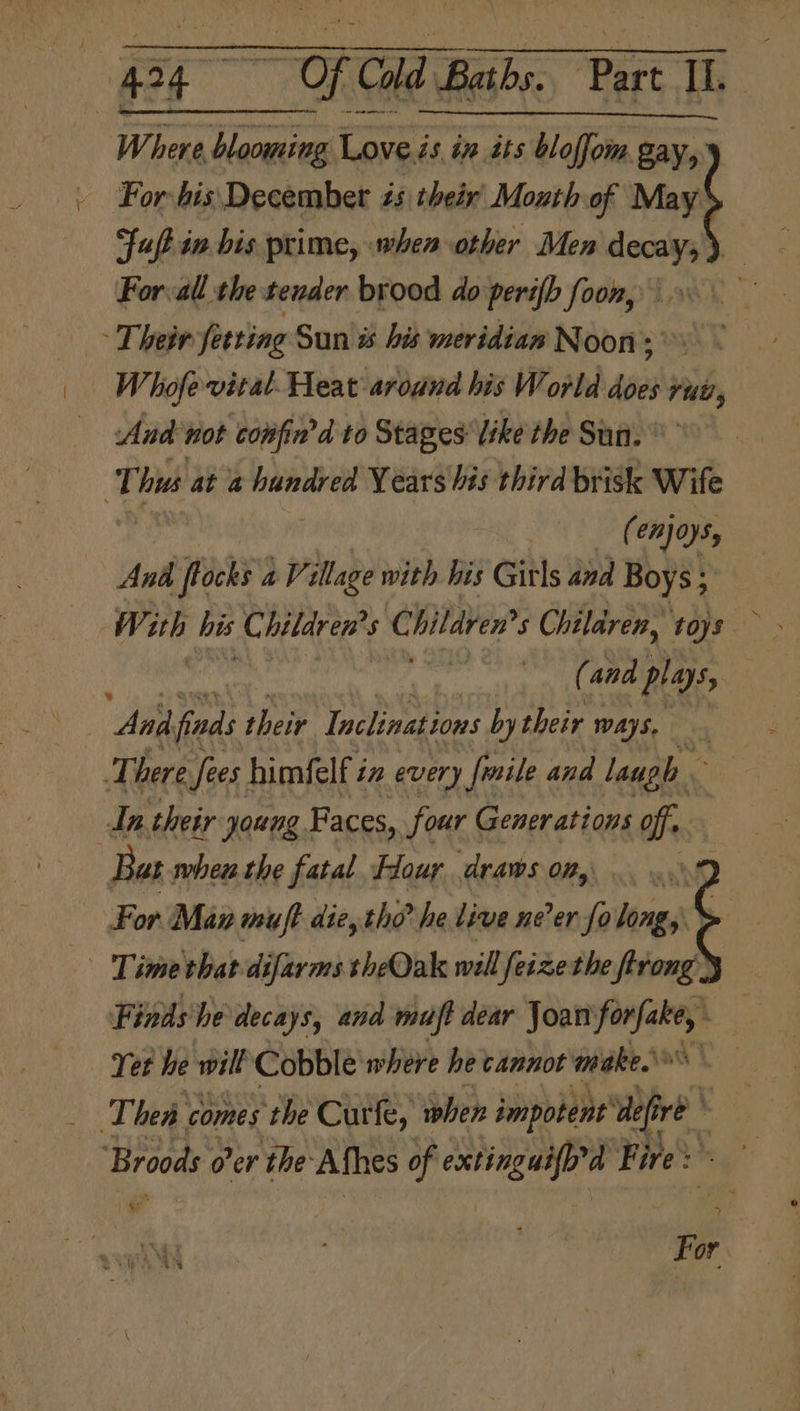 424 Of Cold Baths. Part II.
Where blooming Love is in its blossom gay,
For his December is their Month of May
Just in his prime, when other Men decay,
For all the tender brood do perish soon,
Their setting Sun is his meridian Noon;
Whose vital Heat around his World does run,
And not confin'd to Stages like the Sun.
Thus at a hundred Years his third brisk Wife
(enjoys,
And stocks a Village with his Girls and Boys;
With his Children's Children's Children, toys
(and plays,
And finds their Inclinations by their ways.
There sees himself in every smile and laugh
In their young Faces, four Generations off.
But when the fatal Hour draws on,
For Man must die, tho' he live ne'er so long,
Time that disarms the Oak will seize the strong
Finds he decays, and must dear Joan forsake,
Yet he will Cobble where he cannot make.
Then comes the Curse, when impotent desire
Broods o'er the Ashes of extinguish'd Fire:
For